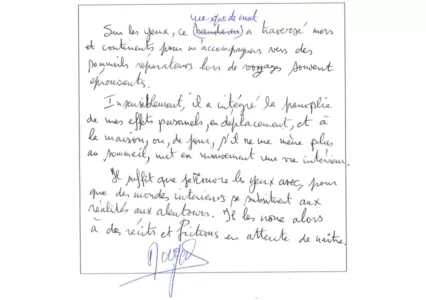 masque de nuit
Sur les yeux, ce (bandeau) a traversé mers
et continents pour m'accompagner vers des
sommeils réparateurs lors de voyages souvent
éprouvants.
Insensiblement, il a intégré la panoplie
de mes effets personnels, en déplacement, et à
la maison, où, de jour, s'il ne me mène plus
au sommeil, met en mouvement une vie intérieure.
Il suffit que je trouve les yeux avec, pour
que des mondes intérieurs se substituent aux
réalités aux alentours. Je les noue alors
à des récits et fictions en attente de naître.